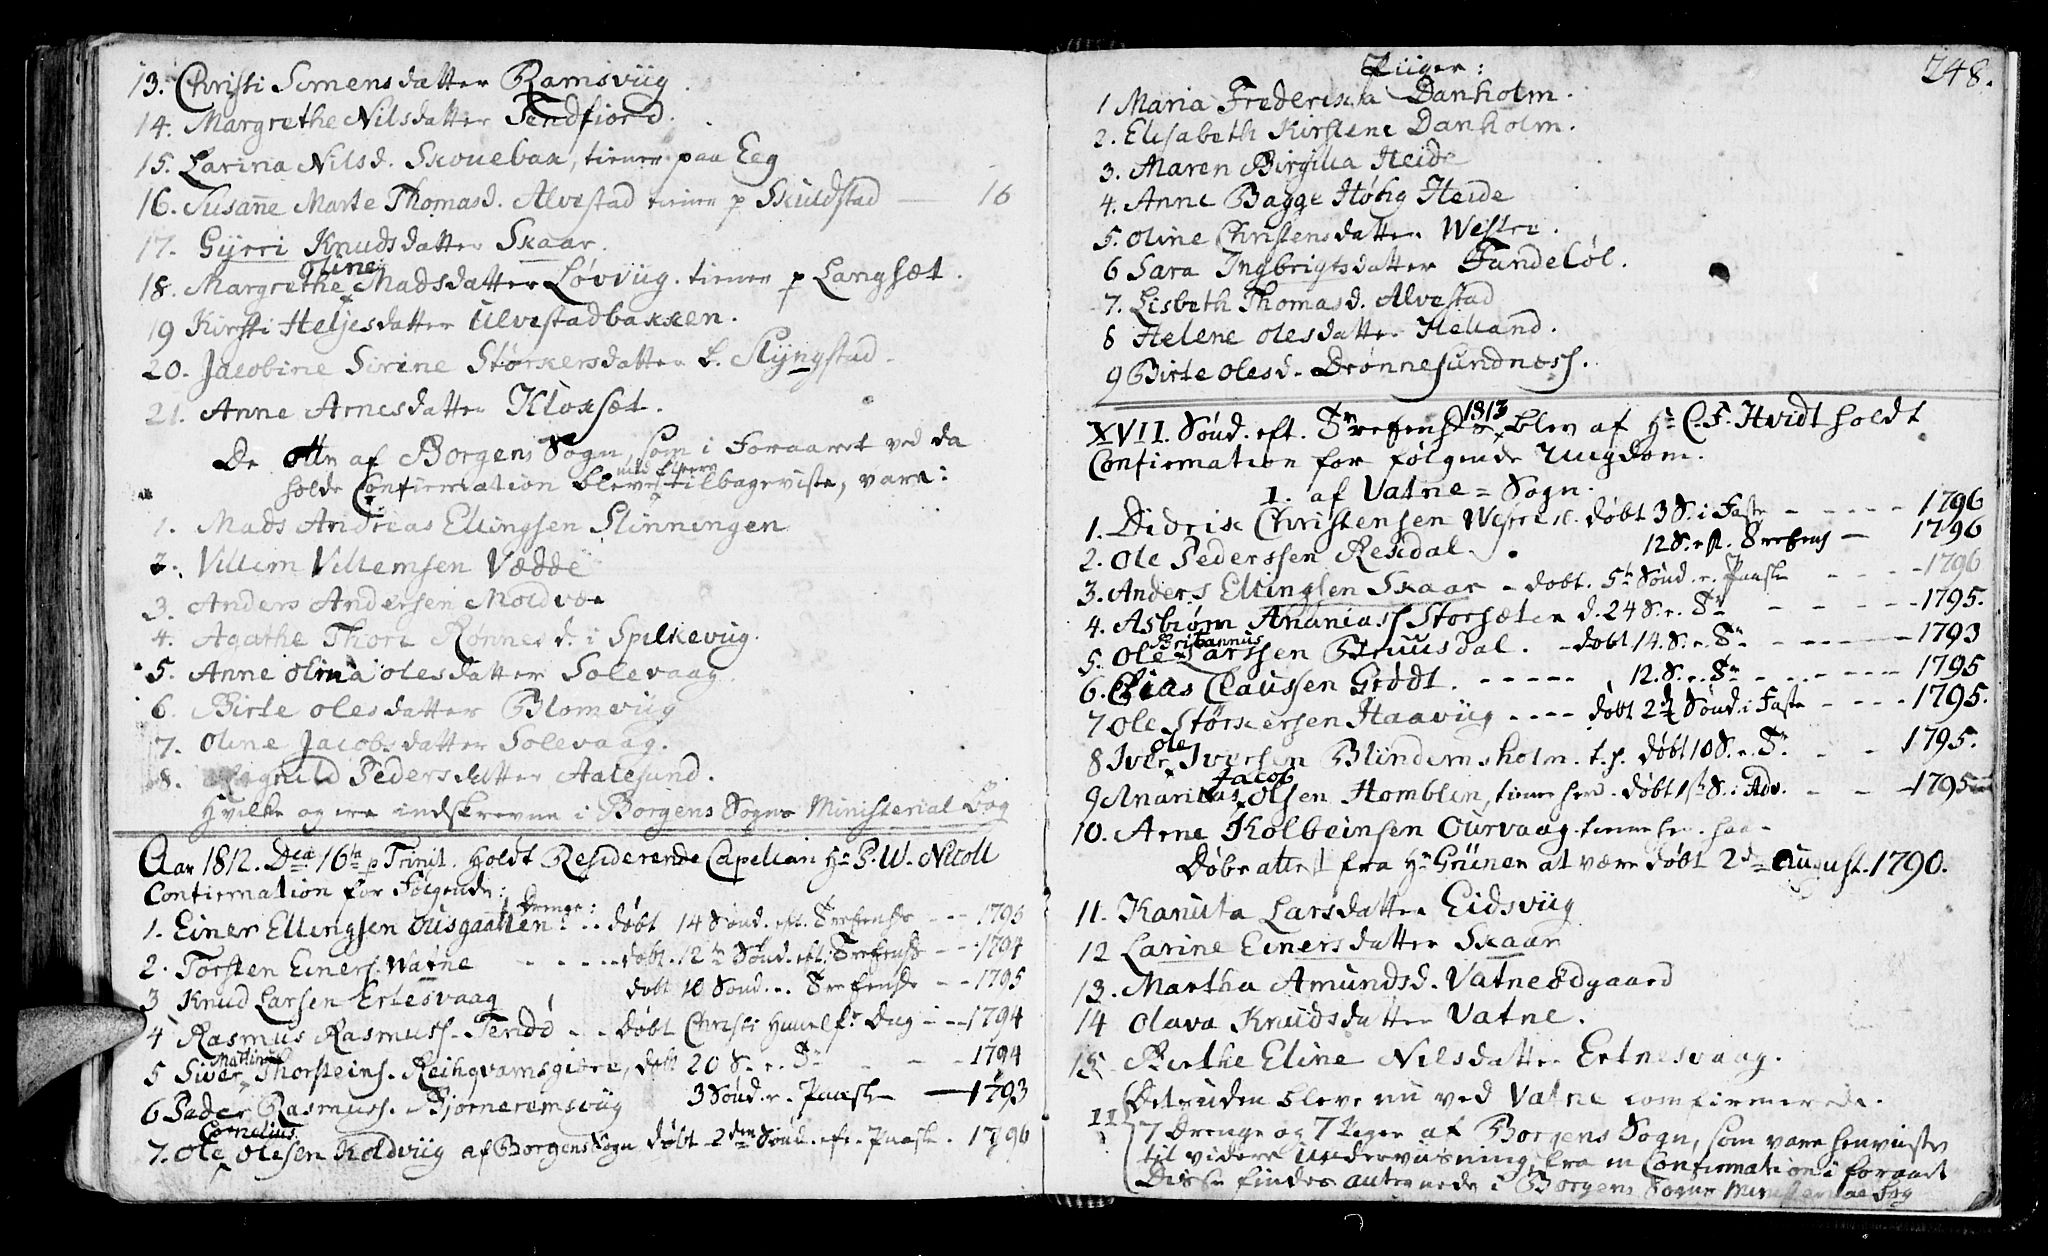 13. Christi Simensdatter Ramsviig.
14. Margrethe Nilsdatter Tendfiord.
15. Larina Nilsd. Skouebak, tiener paa Eeg
16. Susane Marte Thomasd. Alvestad tiener p Skuldstad — 16
17. Gyrri Knudsdatter Skaar.
18. Margrethe Oline Madsdatter Løvviig. tiener p Langsæt.
19 Kirsti Heljesdatter Ulvestadbakken.
20. Jacobine Sirine Størkersdatter S. Slyngstad
21. Anne Arnesdatter Kloksæt.
De otte af Borgens Sogn, som i Foraaret ved da
holde Confirmation bleve med fleere tilbageviste, vare:
1. Mads Andreas Ellingsen Slinningen
2. Villem Villemsen Vædde
3. Anders Andersen Moldvær
4. Agathe Thore Rønnes d. i Spilkeviig.
5. Anne Olina Olesdatter Solevaag.
6. Birte Olesdatter Blomviig
7. Oline Jacobsdatter Solevaag.
8. Ragnild Pedersdatter Aalesund.
Hvilke og ere indskrevne i Borgens Sogns Ministerial Bog
Aar 1812. Dca 16ta p Trinit. holdt Residerende Capellan Hr P. W. Nitoll
Confirmation for Følgende:
1 Drenge:
1. Einer Ellingsen Ousgaarden .. døbt 14 Sønd. eft. Trefensh - - 1795
2. Torsten Einers. Watne - - - - døbt. 12te Sønd. eft. Trefensh - - 1794
3 Knud Larsen Ertesvaag døbt 10 Sønd. e. Trefensh - - 1795
4 Rasmus Rasmuss. Tendø - - døbt Christi Himelf. Dag - - 1794
5 Siver Martinus Thorsteins. Reihqvamsgiære, døbt 20 S. e. Tr - - 1794
6 Peder Rasmuss. Bjørneremsviig 3 Sønd. e. Paaske — 1793
7. Ole Cornelius Olesen Koldviig af Borgens Sogn døbt 2den Sønd. eft. Paask. 1796
248.
Piiger:
1 Maria Frederikka Danholm.
2. Elisabeth Kirstene Danholm.
3. Maren Birgitta Heide
4. Anne Bagge Høhg Heide
5. Oline Christensdatter Westre.
6 Sara Ingbrigtsdatter Tandeløl.
7. Lisbeth Thomasd. Alvestad
8 Helene Olesdatter Helland.
9 Birte Olesd. Drønnesundness.
XVII. Sønd. eft. Trefensh 1813 blev af Hr C. F. Hvidt holdt
Confirmation for følgende Ungdom.
1. af Vatne-Sogn.
1. Didrik Christensen Westre døbt 3 S. i Faste - - - - - 1796
2. Ole Pederssen Resdal. 12 S. eft. Trefens — 1796
3. Anders Ellingsen Skaar - døbt. 5te Sønd. e. Paaske - - - - 1796
4. Asbiørn Ananiass Storsæter d. 24 S. e. Tr - - - - 1795.
5. Ole Britannus Larssen Bruusdal. - døbt 14. S. e. Tr - - - - 1793
6. Elias Claussen Grødt. - - - - - 12. S. e. Tr - - - - - 1795
7 Ole Størkersen Haaviig - - - - døbt 2den Sønd. i Faste - - - - 1795.
8 Iver Ole Iversen Blindemsholm. t. s. døbt 10 S. e. Tr - - 1795.
9 Ananias Jacob Olsen Homblen, tiener her. døbt 1ste S. i Adv. - - 1795
10. Arne Kolbeinsen Ourvaag tiener her.
Døbeattest fra Hr Grünen at være døbt 2d August. 1790.
11. Karuta Larsdatter Eidsviig
12 Larine Einersdatter Skaar
13. Martha Amundsd. Vatneødgaard
14 Olava Knudsdatter Vatne.
15 Birthe Eline Nilsdatter Ertnesvaag.
Desuden bleve nu ved Vatne confirmerede.
II 7 Drenge og 7 Piger af Borgens Sogn, som vare henviiste
til videre Underviisning fra en Confirmation i foraaret
Disse findes antegnede i Borgens Sogns Ministerial bog